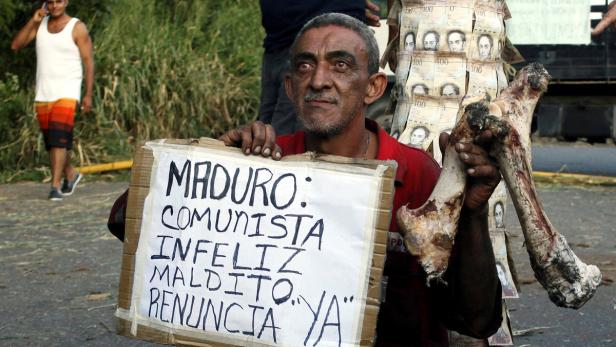 MADURO:
COMUNISTA
INFELIZ
MALDITO
RENUNCIA "YA"
100
100